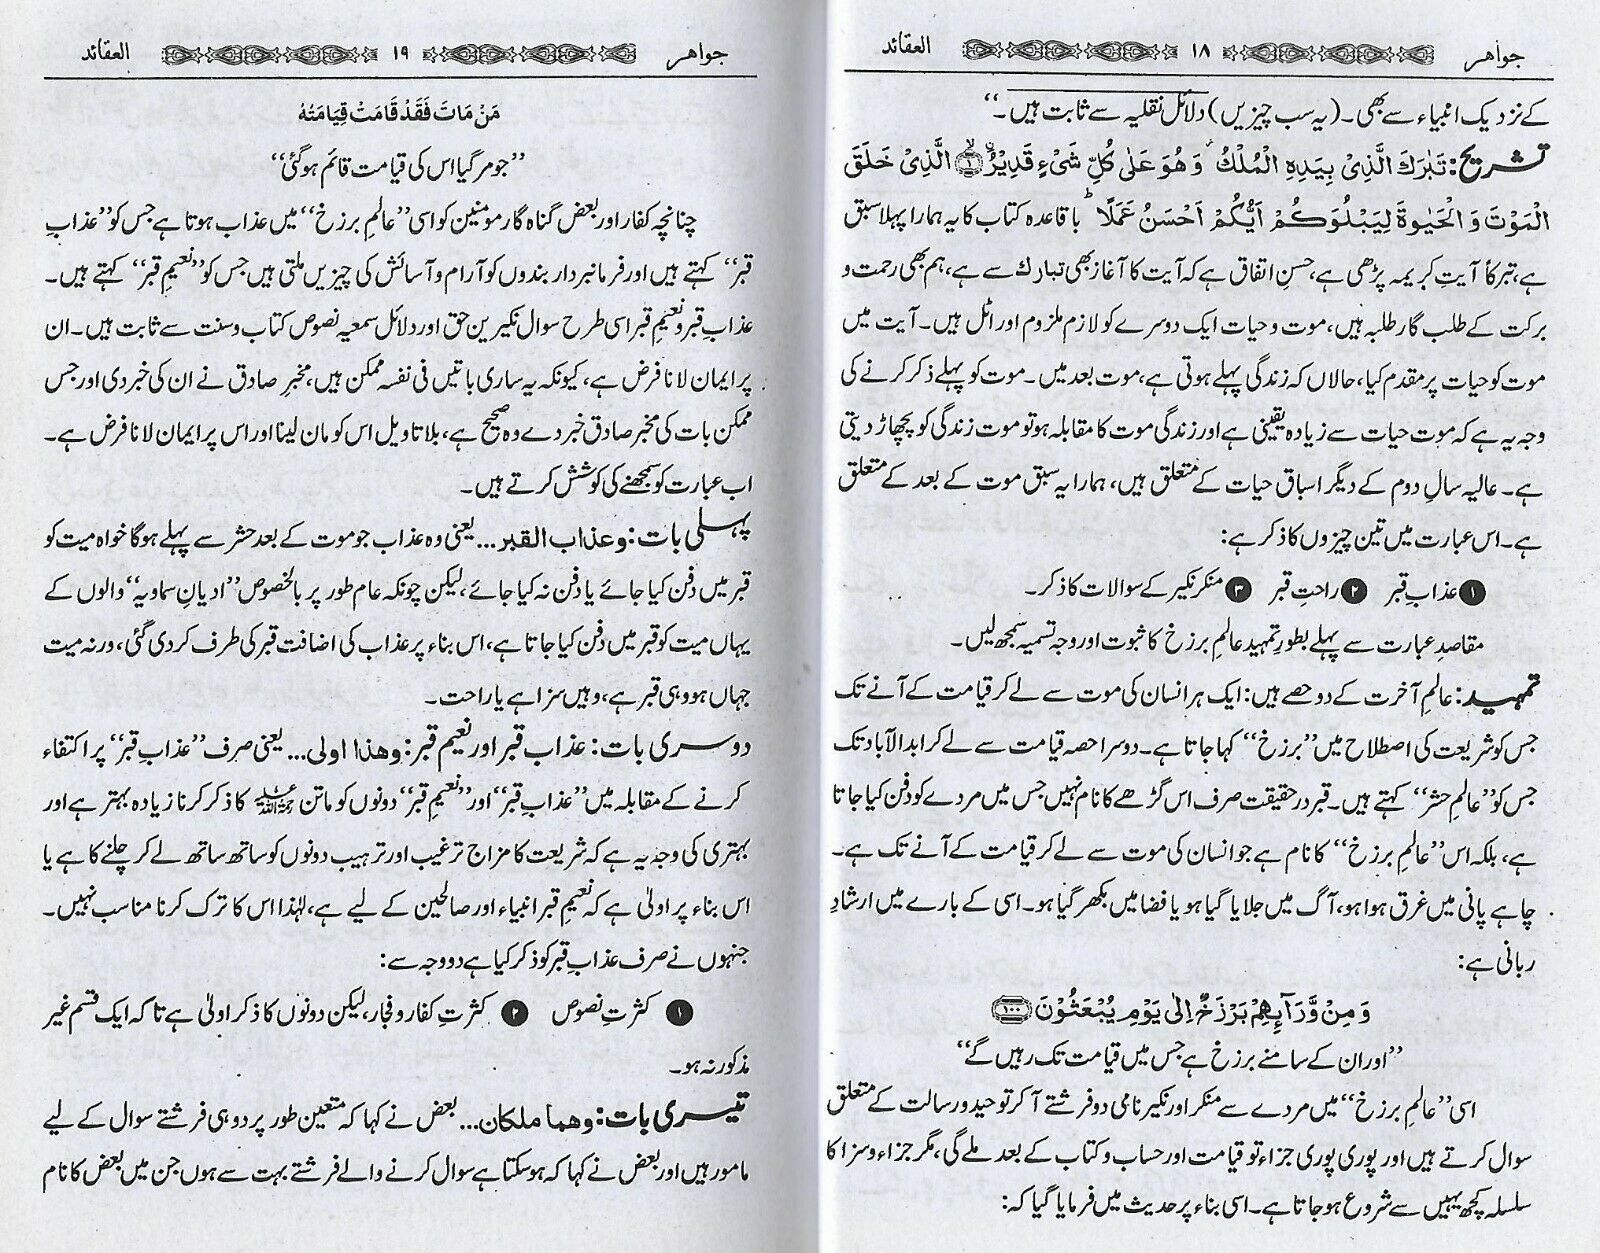 جواهر ۱۸ العقائد
کے نزدیک انبیاء سے بھی۔ (یہ سب چیزیں) دلائل نقلیہ سے ثابت ہیں۔‘‘
تشریح: تَبٰرَكَ الَّذِیْ بِیَدِهِ الْمُلْكُ ؗ وَ هُوَ عَلٰی كُلِّ شَیْءٍ قَدِیْرُۙ ﴿۱﴾ الَّذِیْ خَلَقَ
الْمَوْتَ وَ الْحَیٰوةَ لِیَبْلُوَكُمْ اَیُّكُمْ اَحْسَنُ عَمَلًا ؕ باقاعدہ کتاب کا یہ ہمارا پہلا سبق
ہے، تبرکاً آیتِ کریمہ پڑھی ہے، حسنِ اتفاق ہے کہ آیت کا آغاز بھی تبارك سے ہے، ہم بھی رحمت و
برکت کے طلب گار طلبہ ہیں، موت و حیات ایک دوسرے کو لازم ملزوم اور اٹل ہیں۔ آیت میں
موت کو حیات پر مقدم کیا، حالاں کہ زندگی پہلے ہوتی ہے، موت بعد میں۔ موت کو پہلے ذکر کرنے کی
وجہ یہ ہے کہ موت حیات سے زیادہ یقینی ہے اور زندگی موت کا مقابلہ ہو تو موت زندگی کو پچھاڑ دیتی
ہے۔ عالیہ سالِ دوم کے دیگر اسباق حیات کے متعلق ہیں، ہمارا یہ سبق موت کے بعد کے متعلق
ہے۔ اس عبارت میں تین چیزوں کا ذکر ہے:
❶ عذابِ قبر ❷ راحتِ قبر ❸ منکر نکیر کے سوالات کا ذکر۔
مقاصدِ عبارت سے پہلے بطورِ تمہید عالمِ برزخ کا ثبوت اور وجہ تسمیہ سمجھ لیں۔
تمہید: عالمِ آخرت کے دو حصے ہیں: ایک ہر انسان کی موت سے لے کر قیامت کے آنے تک
جس کو شریعت کی اصطلاح میں ’’برزخ‘‘ کہا جاتا ہے۔ دوسرا حصہ قیامت سے لے کر ابدالآباد تک
جس کو ’’عالمِ حشر‘‘ کہتے ہیں۔ قبر درحقیقت صرف اس گڑھے کا نام نہیں جس میں مردے کو دفن کیا جاتا
ہے، بلکہ اس ’’عالمِ برزخ‘‘ کا نام ہے جو انسان کی موت سے لے کر قیامت کے آنے تک ہے۔
چاہے پانی میں غرق ہوا ہو، آگ میں جلایا گیا ہو یا فضا میں بکھر گیا ہو۔ اسی کے بارے میں ارشادِ
ربانی ہے:
وَ مِنْ وَّرَآىِٕهِمْ بَرْزَخٌ اِلٰی یَوْمِ یُبْعَثُوْنَ ﴿۱۰۰﴾
’’اور ان کے سامنے برزخ ہے جس میں قیامت تک رہیں گے‘‘
اسی ’’عالمِ برزخ‘‘ میں مردے سے منکر اور نکیر نامی دو فرشتے آ کر توحید و رسالت کے متعلق
سوال کرتے ہیں اور پوری پوری جزاء تو قیامت اور حساب و کتاب کے بعد ملے گی، مگر جزاء و سزا کا
سلسلہ کچھ یہیں سے شروع ہو جاتا ہے۔ اسی بناء پر حدیث میں فرمایا گیا کہ:
جواهر ۱۹ العقائد
مَنْ مَاتَ فَقَدْ قَامَتْ قِيَامَتُهُ
’’جو مر گیا اس کی قیامت قائم ہو گئی‘‘
چنانچہ کفار اور بعض گناہ گار مومنین کو اسی ’’عالمِ برزخ‘‘ میں عذاب ہوتا ہے جس کو ’’عذابِ
قبر‘‘ کہتے ہیں اور فرمانبردار بندوں کو آرام و آسائش کی چیزیں ملتی ہیں جس کو ’’نعیمِ قبر‘‘ کہتے ہیں۔
عذابِ قبر و نعیمِ قبر اسی طرح سوالِ نکیرین حق اور دلائل سمعیہ نصوص کتاب و سنت سے ثابت ہیں۔ ان
پر ایمان لانا فرض ہے، کیونکہ یہ ساری باتیں فی نفسہ ممکن ہیں، مخبرِ صادق نے ان کی خبر دی اور جس
ممکن بات کی مخبر صادق خبر دے وہ صحیح ہے، بلا تاویل اس کو مان لینا اور اس پر ایمان لانا فرض ہے۔
اب عبارت کو سمجھنے کی کوشش کرتے ہیں۔
پہلی بات: وعذاب القبر... یعنی وہ عذاب جو موت کے بعد حشر سے پہلے ہوگا خواہ میت کو
قبر میں دفن کیا جائے یا دفن نہ کیا جائے، لیکن چونکہ عام طور پر بالخصوص ’’ادیانِ سماویہ‘‘ والوں کے
یہاں میت کو قبر میں دفن کیا جاتا ہے، اس بناء پر عذاب کی اضافت قبر کی طرف کر دی گئی، ورنہ میت
جہاں ہو وہی قبر ہے، وہیں سزا ہے یا راحت۔
دوسری بات: عذاب قبر اور نعیم قبر: وهذا اولى... یعنی صرف ’’عذابِ قبر‘‘ پر اکتفاء
کرنے کے مقابلہ میں ’’عذابِ قبر‘‘ اور ’’نعیمِ قبر‘‘ دونوں کو ماتن رحمۃ اللہ علیہ کا ذکر کرنا زیادہ بہتر ہے اور
بہتری کی وجہ یہ ہے کہ شریعت کا مزاج ترغیب اور ترہیب دونوں کو ساتھ ساتھ لے کر چلنے کا ہے یا
اس بناء پر اولیٰ ہے کہ نعیمِ قبر انبیاء اور صالحین کے لیے ہے، لہٰذا اس کا ترک کرنا مناسب نہیں۔
جنہوں نے صرف عذابِ قبر کو ذکر کیا ہے دو وجہ سے:
❶ کثرتِ نصوص ❷ کثرتِ کفار و فجار، لیکن دونوں کا ذکر اولیٰ ہے تا کہ ایک قسم غیر
مذکور نہ ہو۔
تیسری بات: وهما ملكان... بعض نے کہا کہ متعین طور پر دو ہی فرشتے سوال کے لیے
مامور ہیں اور بعض نے کہا کہ ہو سکتا ہے سوال کرنے والے فرشتے بہت سے ہوں جن میں بعض کا نام